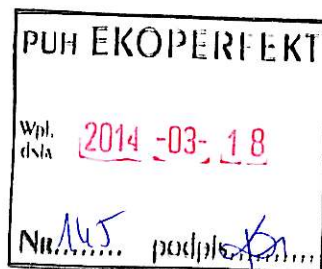 PUH EKOPERFEKT
Wpł. dnia 2014 -03- 18
Nr. 145 podpis